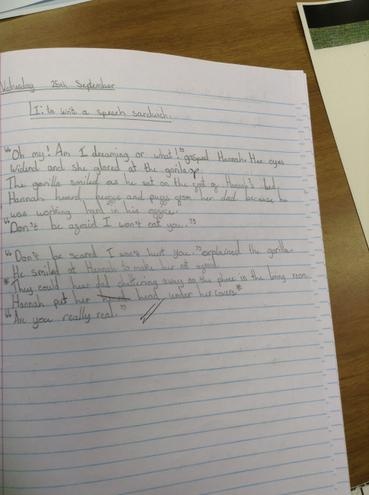 Wednesday 25th September
LI: to write a speech sandwich.
"Oh my! Am I dreaming or what!" gasped Hannah. Her eyes
widend and she glared at the gorilla.
The gorilla smiled as he sat on the end of Hannah's bed.
Hannah heard huffs and puffs from her dad because he
was working hard in his office.
"Don't be afraid I won't eat you."
"Don't be scared I won't hurt you." explained the gorilla.
He smiled at Hannah to make her not afraid.
*They could hear dad chattering away on the phone in the living room.
Hannah put her head under her covers*
"Are you really real."